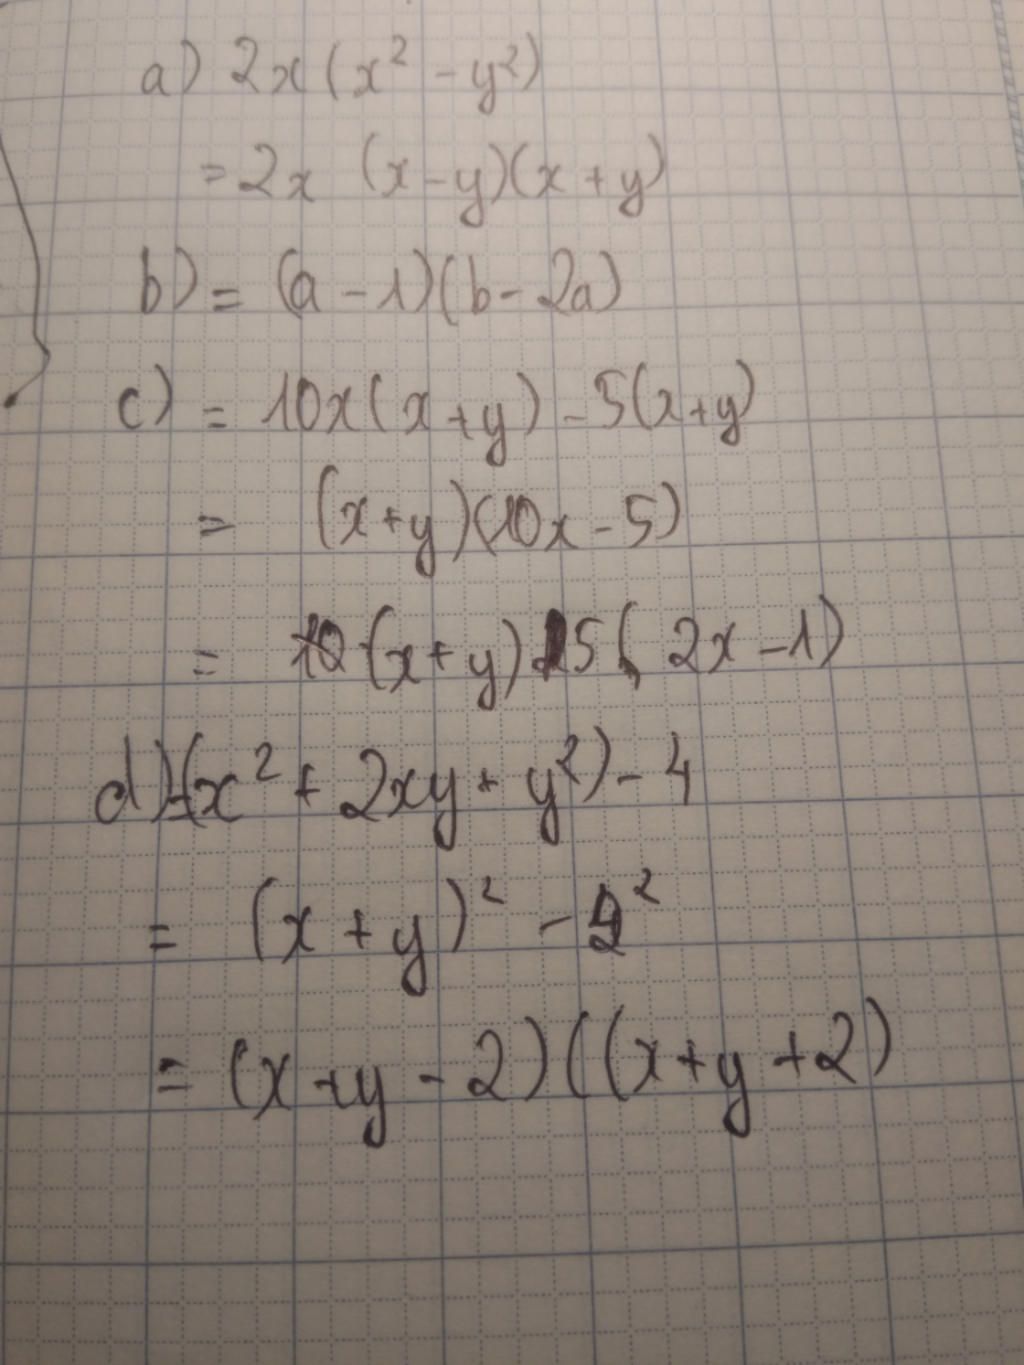 a) 2x(x² - y²)
= 2x (x - y)(x + y)
b) = (a - 1)(b - 2a)
c) = 10x(x + y) - 5(x + y)
= (x + y)(10x - 5)
= (x + y) 5( 2x - 1)
d) = (x² + 2xy + y²) - 4
= (x + y)² - 2²
= (x + y - 2)((x + y + 2)